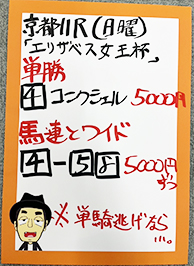 京都11R(日曜)
「エリザベス女王杯」
単勝
4 コンクシェル 5000円
馬連とワイド
4-5,8 5000円
ずつ
※単騎逃げなら
…。